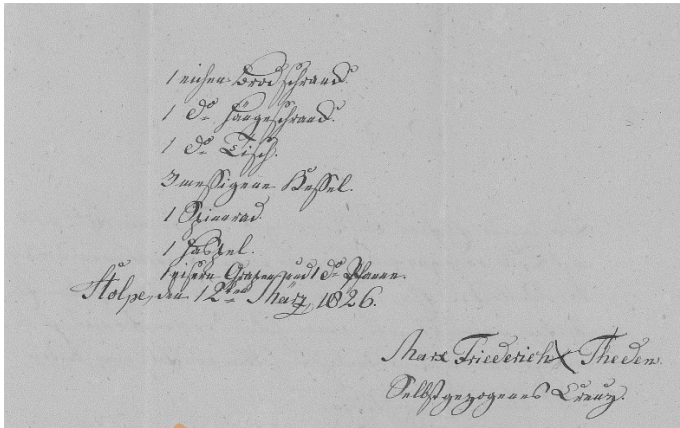 1 eichen Brodschrank.
1 do Hängeschrank.
1 do Tisch.
3 messigene Kessel.
1 Spinnrad.
1 Haspel.
1 eisern Grapen und 1 do Pfanne.
Stolpe, den 12ten März, 1826.
Marx Friederich X Theden.
Selbstgezogenes Creuz.